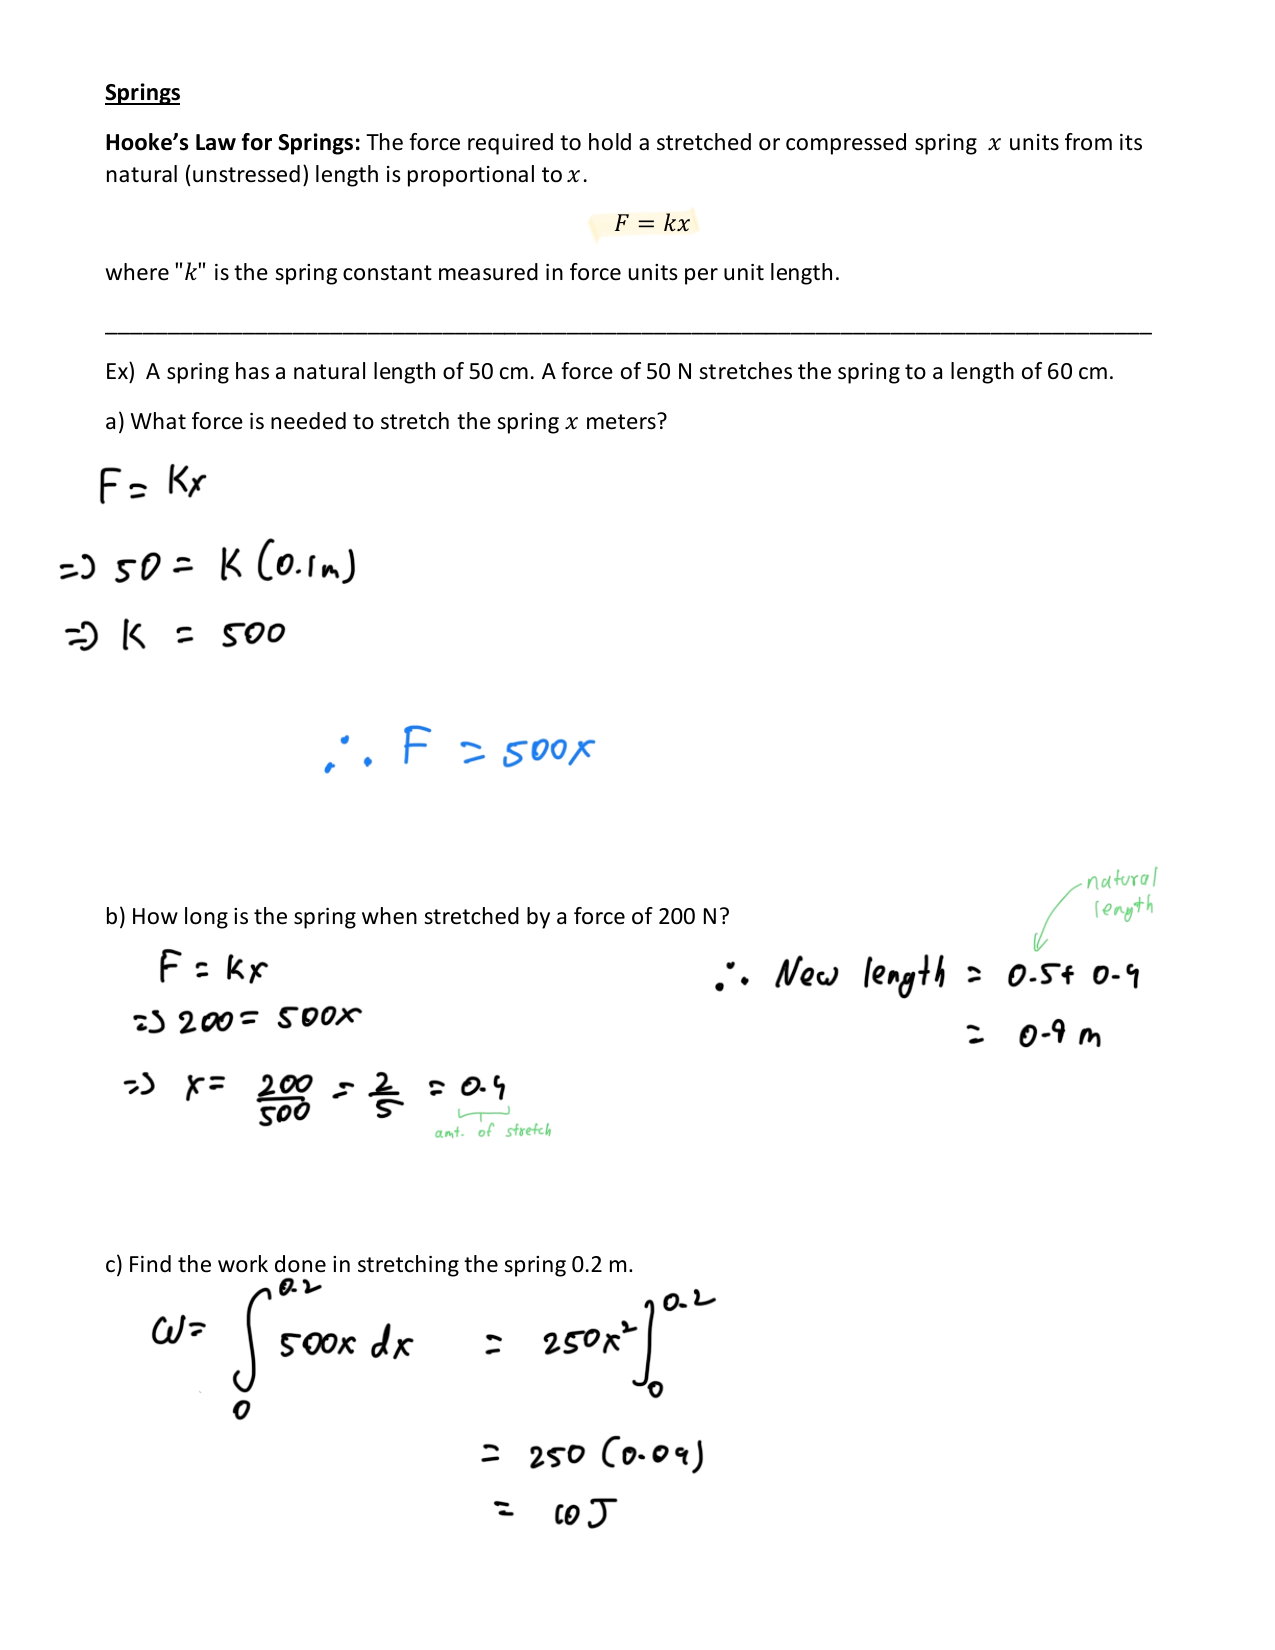 Springs
Hooke's Law for Springs: The force required to hold a stretched or compressed spring x units from its
natural (unstressed) length is proportional to x.
F = kx
where "k" is the spring constant measured in force units per unit length.
Ex) A spring has a natural length of 50 cm. A force of 50 N stretches the spring to a length of 60 cm.
a) What force is needed to stretch the spring x meters?
F = Kx
⇒ 50 = K (0.1m)
⇒ K = 500
∴ F = 500x
b) How long is the spring when stretched by a force of 200 N?
F = Kx
⇒ 200 = 500x
⇒ x = 200/500 = 2/5 = 0.4
amt. of stretch
natural
length
∴ New length = 0.5 + 0.4
= 0.9 m
c) Find the work done in stretching the spring 0.2 m.
W = ∫₀^0.2 500x dx = 250x² ]₀^0.2
= 250 (0.04)
= 10 J